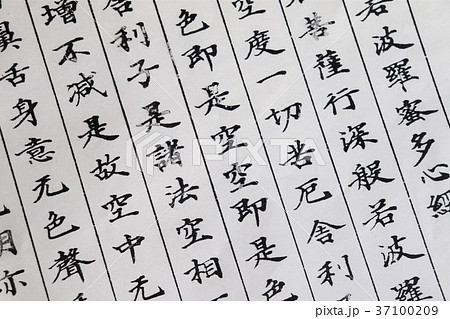 若波羅蜜多心經
菩薩行深般若波羅
空度一切苦厄舍利
色即是空空即是色
舍利子是諸法空相
增不減是故空中无
鼻舌身意无色聲
明亦
PIXTA
pixta.jp - 37100209